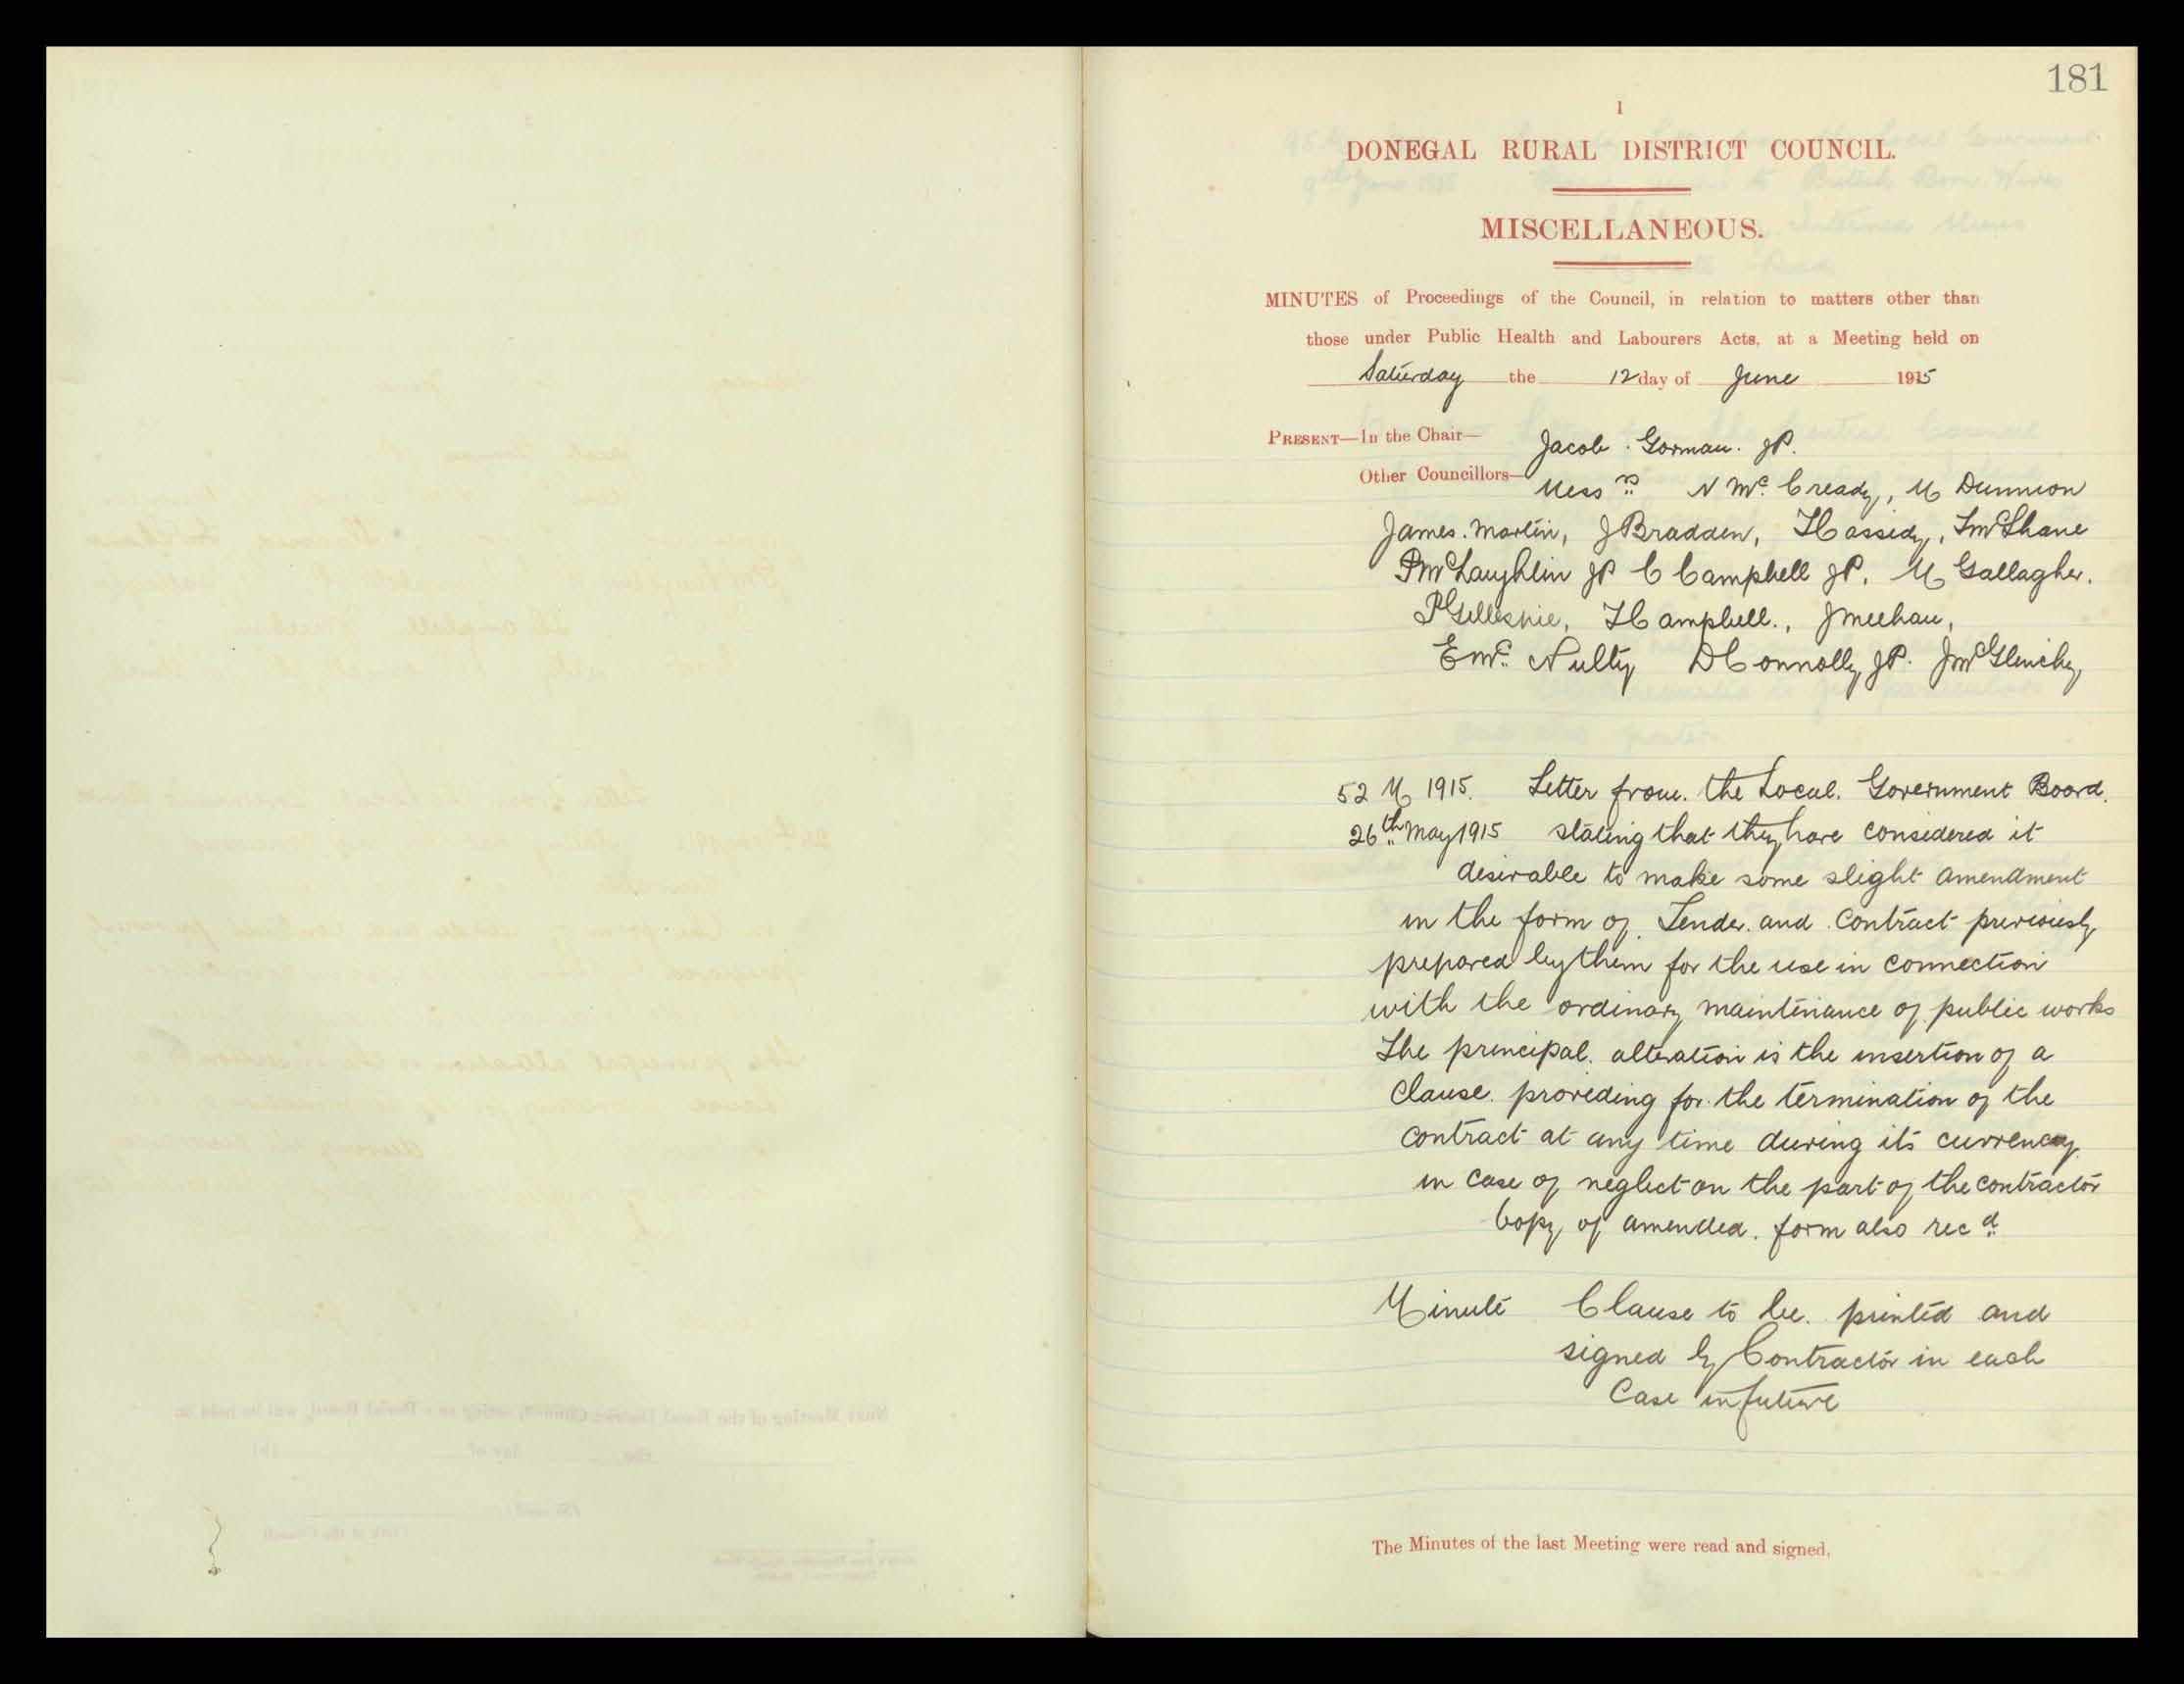 181
1
DONEGAL RURAL DISTRICT COUNCIL.
MISCELLANEOUS.
MINUTES of Proceedings of the Council, in relation to matters other than
those under Public Health and Labourers Acts, at a Meeting held on
Saturday the 12 day of June 1915
PRESENT—In the Chair— Jacob Gorman. JP.
Other Councillors— Messrs N McCready, M Dunnion
James Martin, J Bradden, F Cassidy, T McShane
P McLaughlin JP C Campbell JP. M Gallagher.
P Gillespie, F Campbell., J Meehan,
E Mc Nulty D Connolly JP. J McGlinchy
52 M 1915. Letter from the Local Government Board.
26th May 1915 stating that they have considered it
desirable to make some slight amendment
in the form of Tender and Contract previously
prepared by them for the use in connection
with the ordinary maintenance of public works
The principal alteration is the insertion of a
Clause providing for the termination of the
contract at any time during its currency
in case of neglect on the part of the contractor
Copy of amended form also recd
Minute Clause to be printed and
signed by Contractor in each
Case in future
The Minutes of the last Meeting were read and signed.